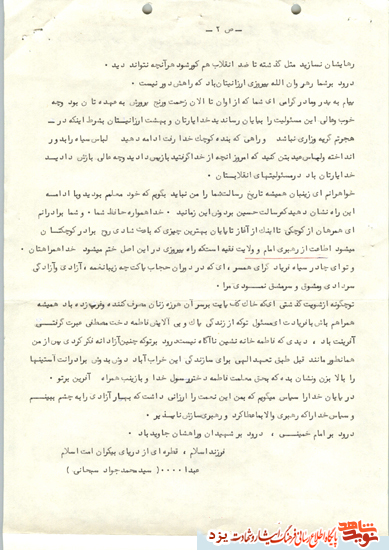 ص ۲
رهایشان نسازید مثل گذشته تا ضد انقلاب هم کور شود هر آنچه نتواند دید .
درود بر شما رهروان الله پیروزی ارزانیتان باد که راهش دور نیست .
پیام به پدر و مادر گرامی ای شما که از اوان تا الان زحمت ورنج پرورش به عهده تان بود وچه
خوب وعالی این مسئولیت را بپایان رساندید خدا یارتان و بهشت ارزانیتان بشرط اینکه در
هجرتم گریه وزاری نباشد و راهی که بنده کوچک خدا رفت ادامه دهید لباس سیاه را بدور
انداخته ولباس عید بتن کنید که امروز آنچه از خدا گرفتید بازپس دادید وچه عالی بازش دادید
خدا یارتان باد در مسئولیتهای انقلابیتان .
خواهرانم ای زینبان همیشه تاریخ رسالت شما را من نباید بگویم که خود معلم بودید وبا ادامه
این راه نشان دهید که رسالت حسین بر دوش این زمانید . خدا همواره حافظ شما ، و شما برادرانم
ای همرهان از کوچکی تا اینک از آغاز تا پایان بهترین چیزی که باعث شادی روح برادر کوچکتان
میشود اطاعت از رهبری امام و ولایت فقیه است که راه پیروزی در این اصل ختم میشود خدا همراهتان
و توای چادر سیاه فریاد گرای همسر ، ای که در دوران حجاب پاکت چه زیبا نغمه آزادی وآزادگی
سر دادی ومشوق و سرمشق نمودی مرا .
توچگونه از شویت گذشتی ای که خاک کف پایت بر سر آن هرزه زنان مصرف کننده و غرب زده باد همیشه
همراهم باش با فریادت ای مسئول
آفرینت باد ، دیدی که فاطمه خانه نشین ناآگاه نیست درود بر تو که چنین آزادانه فکر کردی پس از من
همانطور مانند قبل طبق تعهد الهی برای سازندگی این خراب آباد دوش بدوش برادرانت آستینها
را بالا بزن ونشان بده که پیش معلمت فاطمه دختر رسول خدا و با زینب همراه آفرین بر تو .
در پایان خدا را سپاس میگویم که بمن این نعمت را ارزانی داشت که بهار آزادی را به چشم ببینم
و سپاس خدا را که رهبری والا بما عطا کرد و رهبری سازش ناپذیر .
درود بر امام خمینی ، درود بر شهیدان و راهشان جاوید باد .
فرزند اسلام ، قطره ای از دریای بیکران امت اسلام
عبدا ۰۰۰۰ ( سید محمد جواد سبحانی )
نوید شاهد
پایگاه اطلاع رسانی فرهنگ ایثار و شهادت یزد